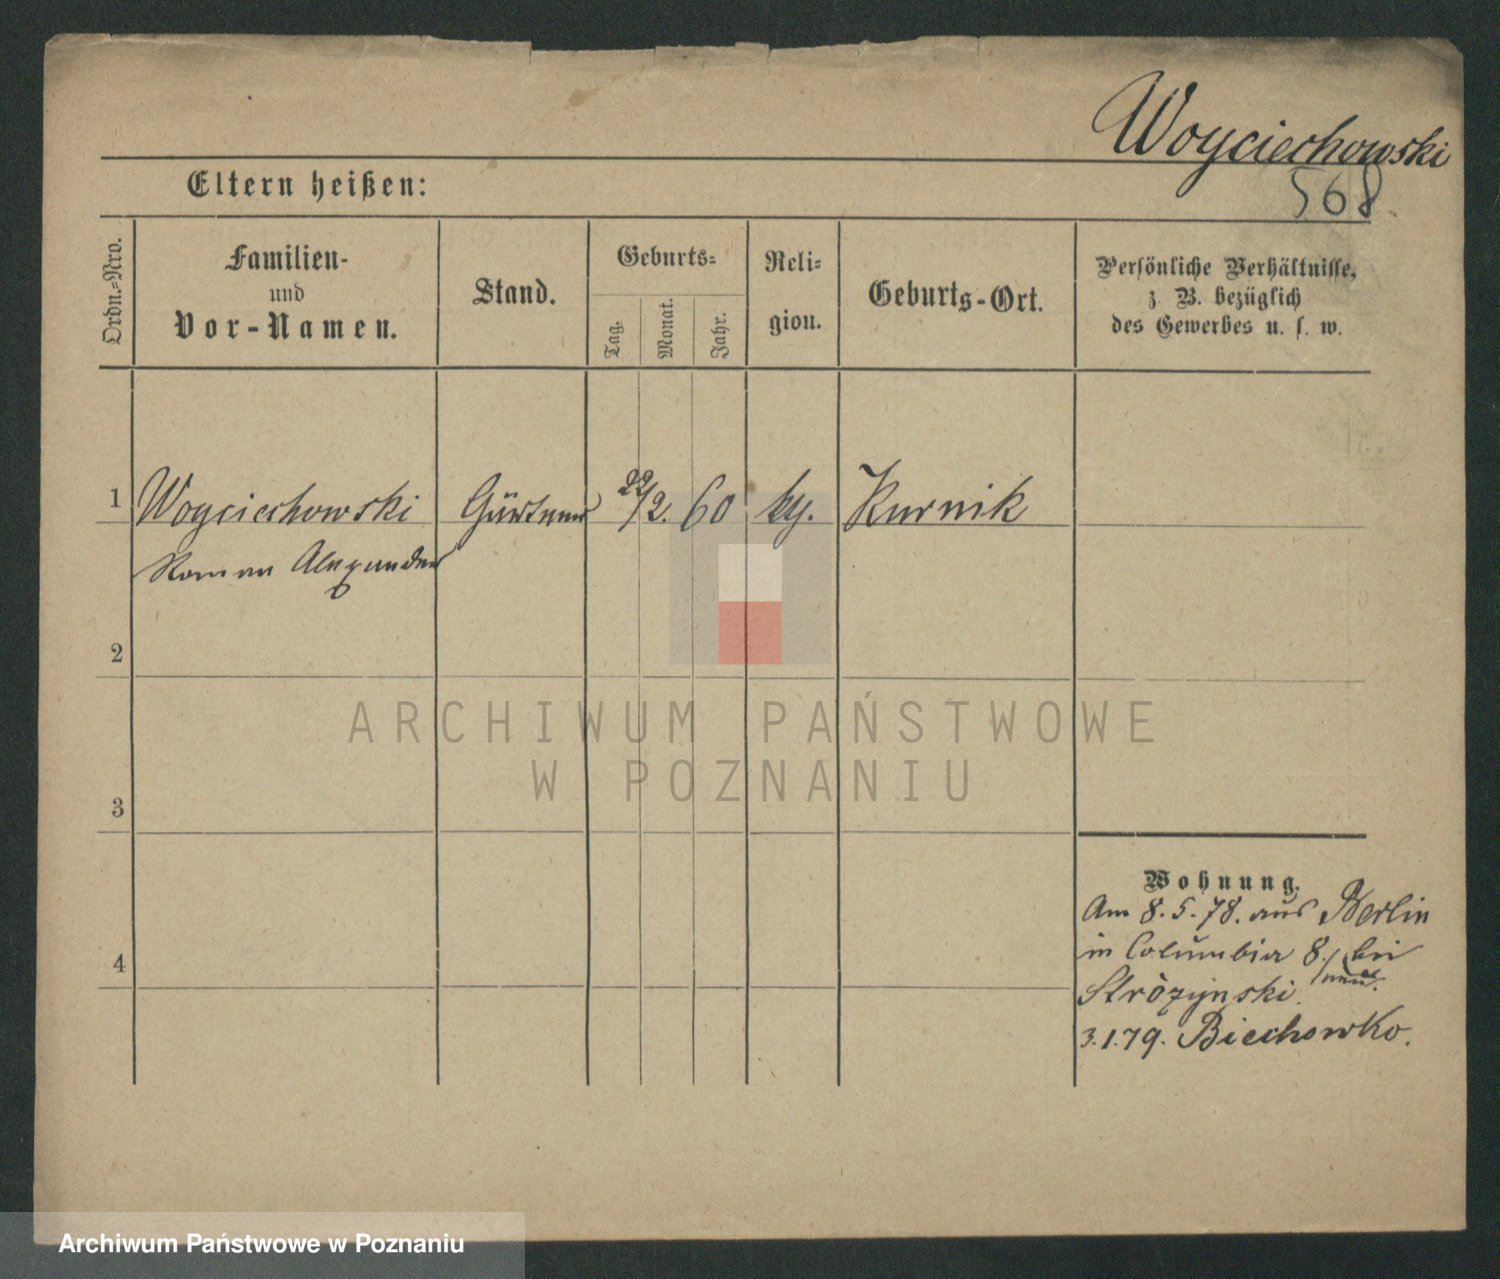 Woyciechowski
568
Eltern heißen:
Ordn.-Nro.
Familien-
und
Vor-Namen.
Stand.
Geburts-
Tag.
Monat.
Jahr.
Reli-
gion.
Geburts-Ort.
Persönliche Verhältnisse,
z. B. bezüglich
des Gewerbes u. s. w.
1 Woyciechowski Gärtner 22/2. 60 Kurnik
Roman Alexander
2
3
4
Wohnung.
Am 8.5.78. aus Berlin
in Columbia 8. bei
Stròzynski.
3.1.79. Biechowko.
ARCHIWUM PAŃSTWOWE
W POZNANIU
Archiwum Państwowe w Poznaniu